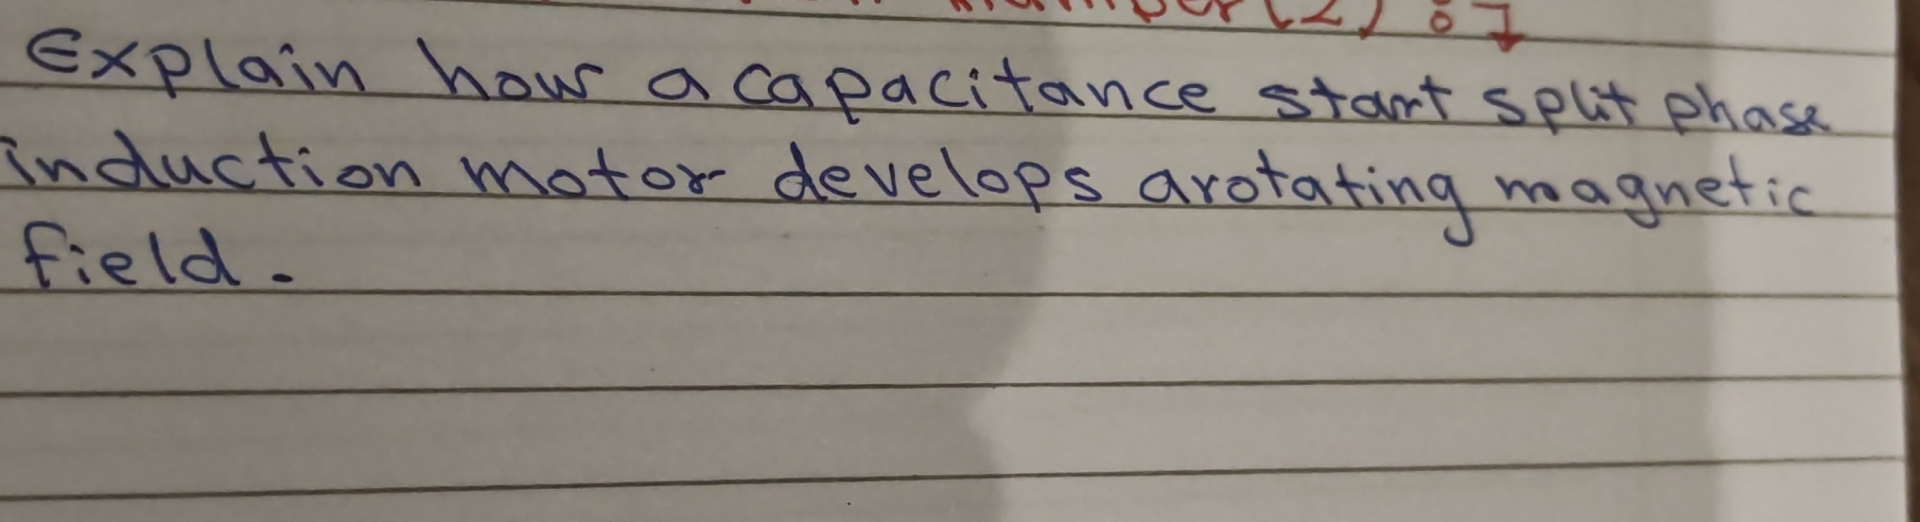 Explain how a capacitance start split phase
induction motor develops arotating magnetic
field.